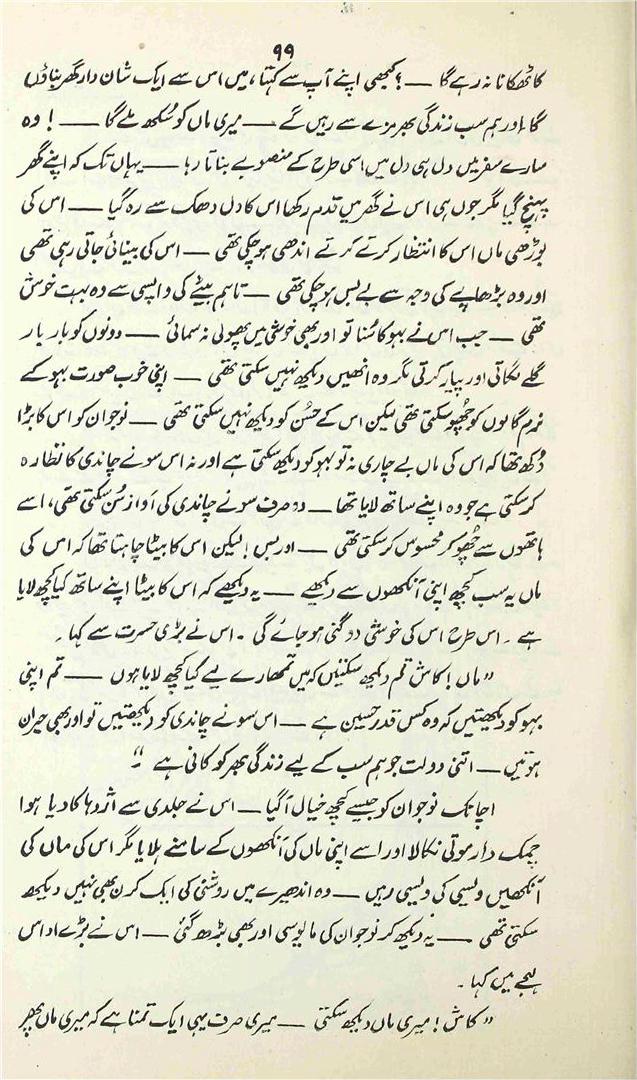 ۹۹
کا ٹھکانا نہ رہے گا — ؟ کبھی اپنے آپ سے کہتا، میں اس سے ایک شان دار گھر بناؤں
گا اور ہم سب زندگی بھر مزے سے رہیں گے — میری ماں کو سُکھ ملے گا — ! وہ
سارے سفر میں دل ہی دل میں اسی طرح کے منصوبے بناتا رہا — یہاں تک کہ اپنے گھر
پہنچ گیا مگر جوں ہی اس نے گھر میں قدم رکھا اس کا دل دھک سے رہ گیا — اس کی
بوڑھی ماں اس کا انتظار کرتے کرتے اندھی ہو چکی تھی — اس کی بینائی جاتی رہی تھی
اور وہ بڑھاپے کی وجہ سے بے بس ہو چکی تھی — تاہم بیٹے کی واپسی سے وہ بہت خوش
تھی — جب اس نے بہو کا سُنا تو اور بھی خوشی میں پھولی نہ سمائی — دونوں کو بار بار
گلے لگاتی اور پیار کرتی مگر وہ انھیں دیکھ نہیں سکتی تھی — اپنی خوب صورت بہو کے
نرم گالوں کو چُھو سکتی تھی لیکن اس کے حسُن کو دیکھ نہیں سکتی تھی — نوجوان کو اس کا بڑا
دُکھ تھا کہ اس کی ماں بے چاری نہ تو بہو کو دیکھ سکتی ہے اور نہ اس سونے چاندی کا نظارہ
کر سکتی ہے جو وہ اپنے ساتھ لایا تھا — وہ صرف سونے چاندی کی آواز سُن سکتی تھی، اسے
ہاتھوں سے چُھو کر محسوس کر سکتی تھی — اور بس ! لیکن اس کا بیٹا چاہتا تھا کہ اس کی
ماں یہ سب کچھ اپنی آنکھوں سے دیکھے — یہ دیکھے کہ اس کا بیٹا اپنے ساتھ کیا کچھ لایا
ہے ۔ اس طرح اس کی خوشی دوگنی ہو جائے گی ۔ اس نے بڑی حسرت سے کہا ۔
” ماں ! کاش تم دیکھ سکتیں کہ میں تمھارے لیے کیا کچھ لایا ہوں — تم اپنی
بہو کو دیکھتیں کہ وہ کس قدر حسین ہے — اس سونے چاندی کو دیکھتیں تو اور بھی حیران
ہوتیں — اتنی دولت جو ہم سب کے لیے زندگی بھر کو کافی ہے “
اچانک نوجوان کو جیسے کچھ خیال آ گیا — اس نے جلدی سے اژدہا کا دیا ہوا
چمک دار موتی نکالا اور اسے اپنی ماں کی آنکھوں کے سامنے ہلایا مگر اس کی ماں کی
آنکھیں ویسی کی ویسی رہیں — وہ اندھیرے میں روشنی کی ایک کرن بھی نہیں دیکھ
سکتی تھی — یہ دیکھ کر نوجوان کی مایوسی اور بھی بڑھ گئی — اس نے بڑے اداس
لہجے میں کہا ۔
” کاش ! میری ماں دیکھ سکتی — میری صرف یہی ایک تمنا ہے کہ میری ماں پھر